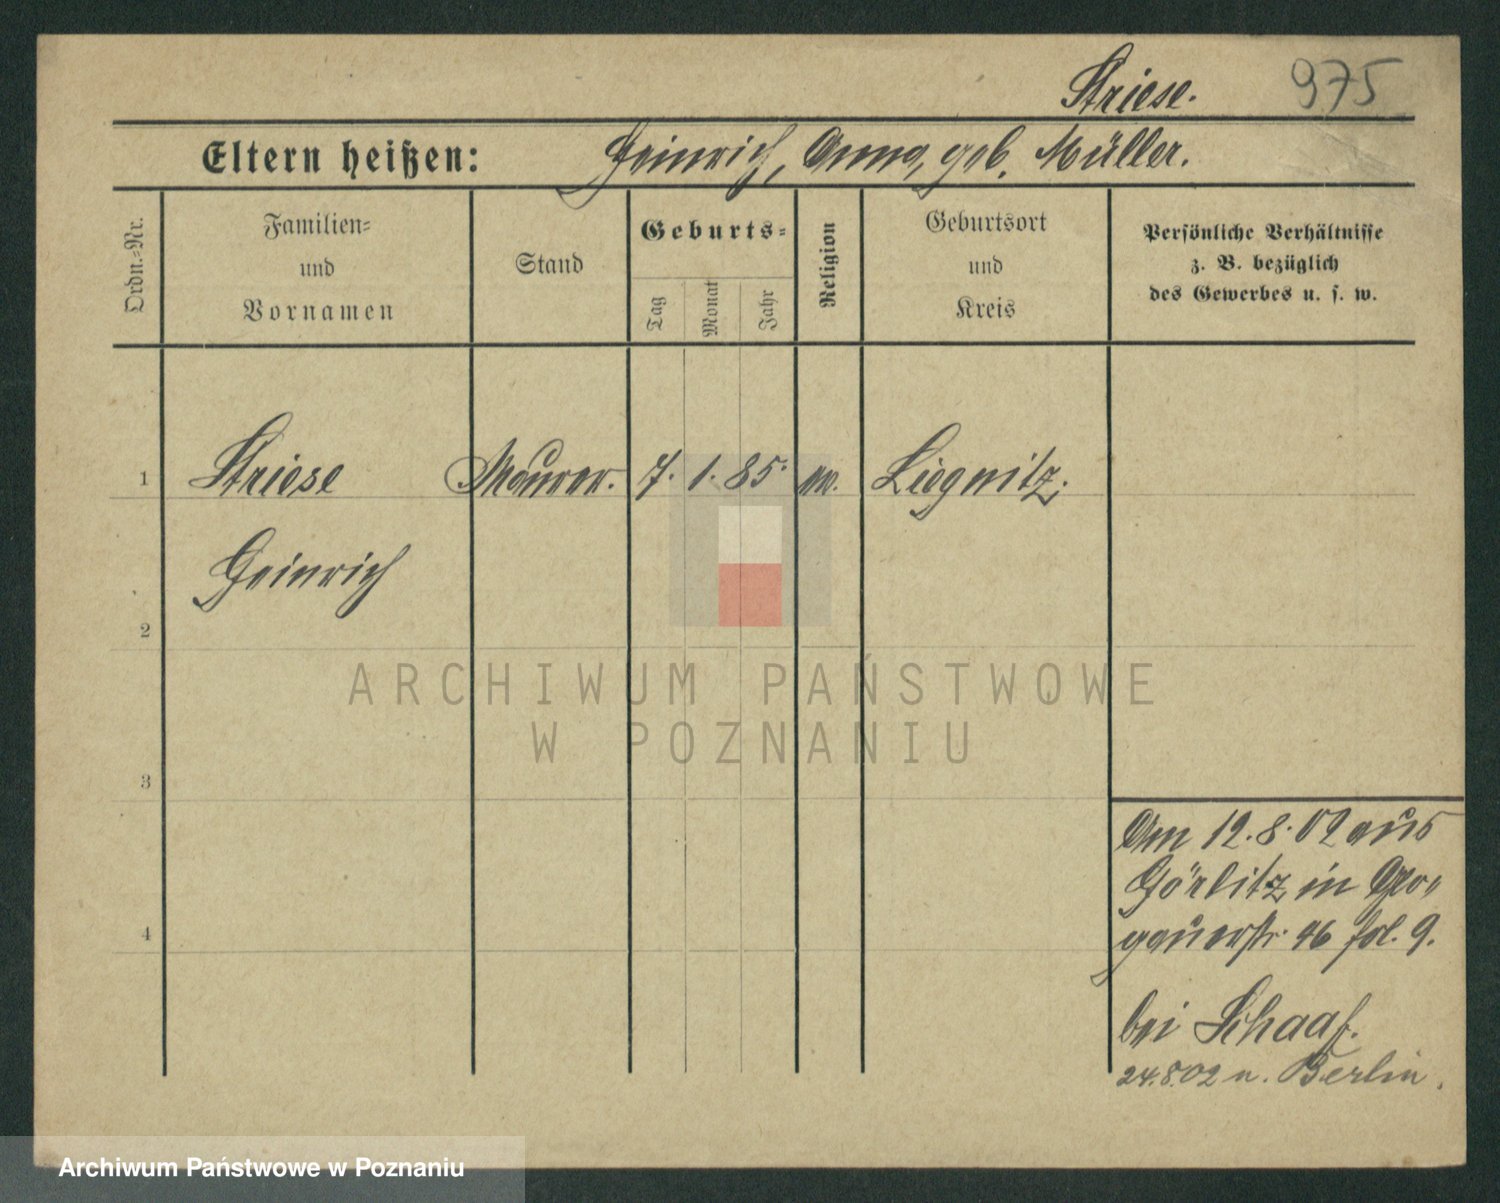 Striese. 975
Eltern heißen: Heinrich, Anna, geb. Müller.
Ordn.-Nr.
Familien=
und
Vornamen
Stand
Geburts=
Tag
Monat
Jahr
Religion
Geburtsort
und
Kreis
Persönliche Verhältnisse
z. B. bezüglich
des Gewerbes u. s. w.
1 Striese Maurer. 7. 1. 85. ev. Liegnitz.
Heinrich
2
ARCHIWUM PAŃSTWOWE
W POZNANIU
3
Am 12.8.02 aus
Görlitz in Glo-
gauerstr. 96 fol. 9.
4
bei Schaaf.
24.8.02 n. Berlin.
Archiwum Państwowe w Poznaniu